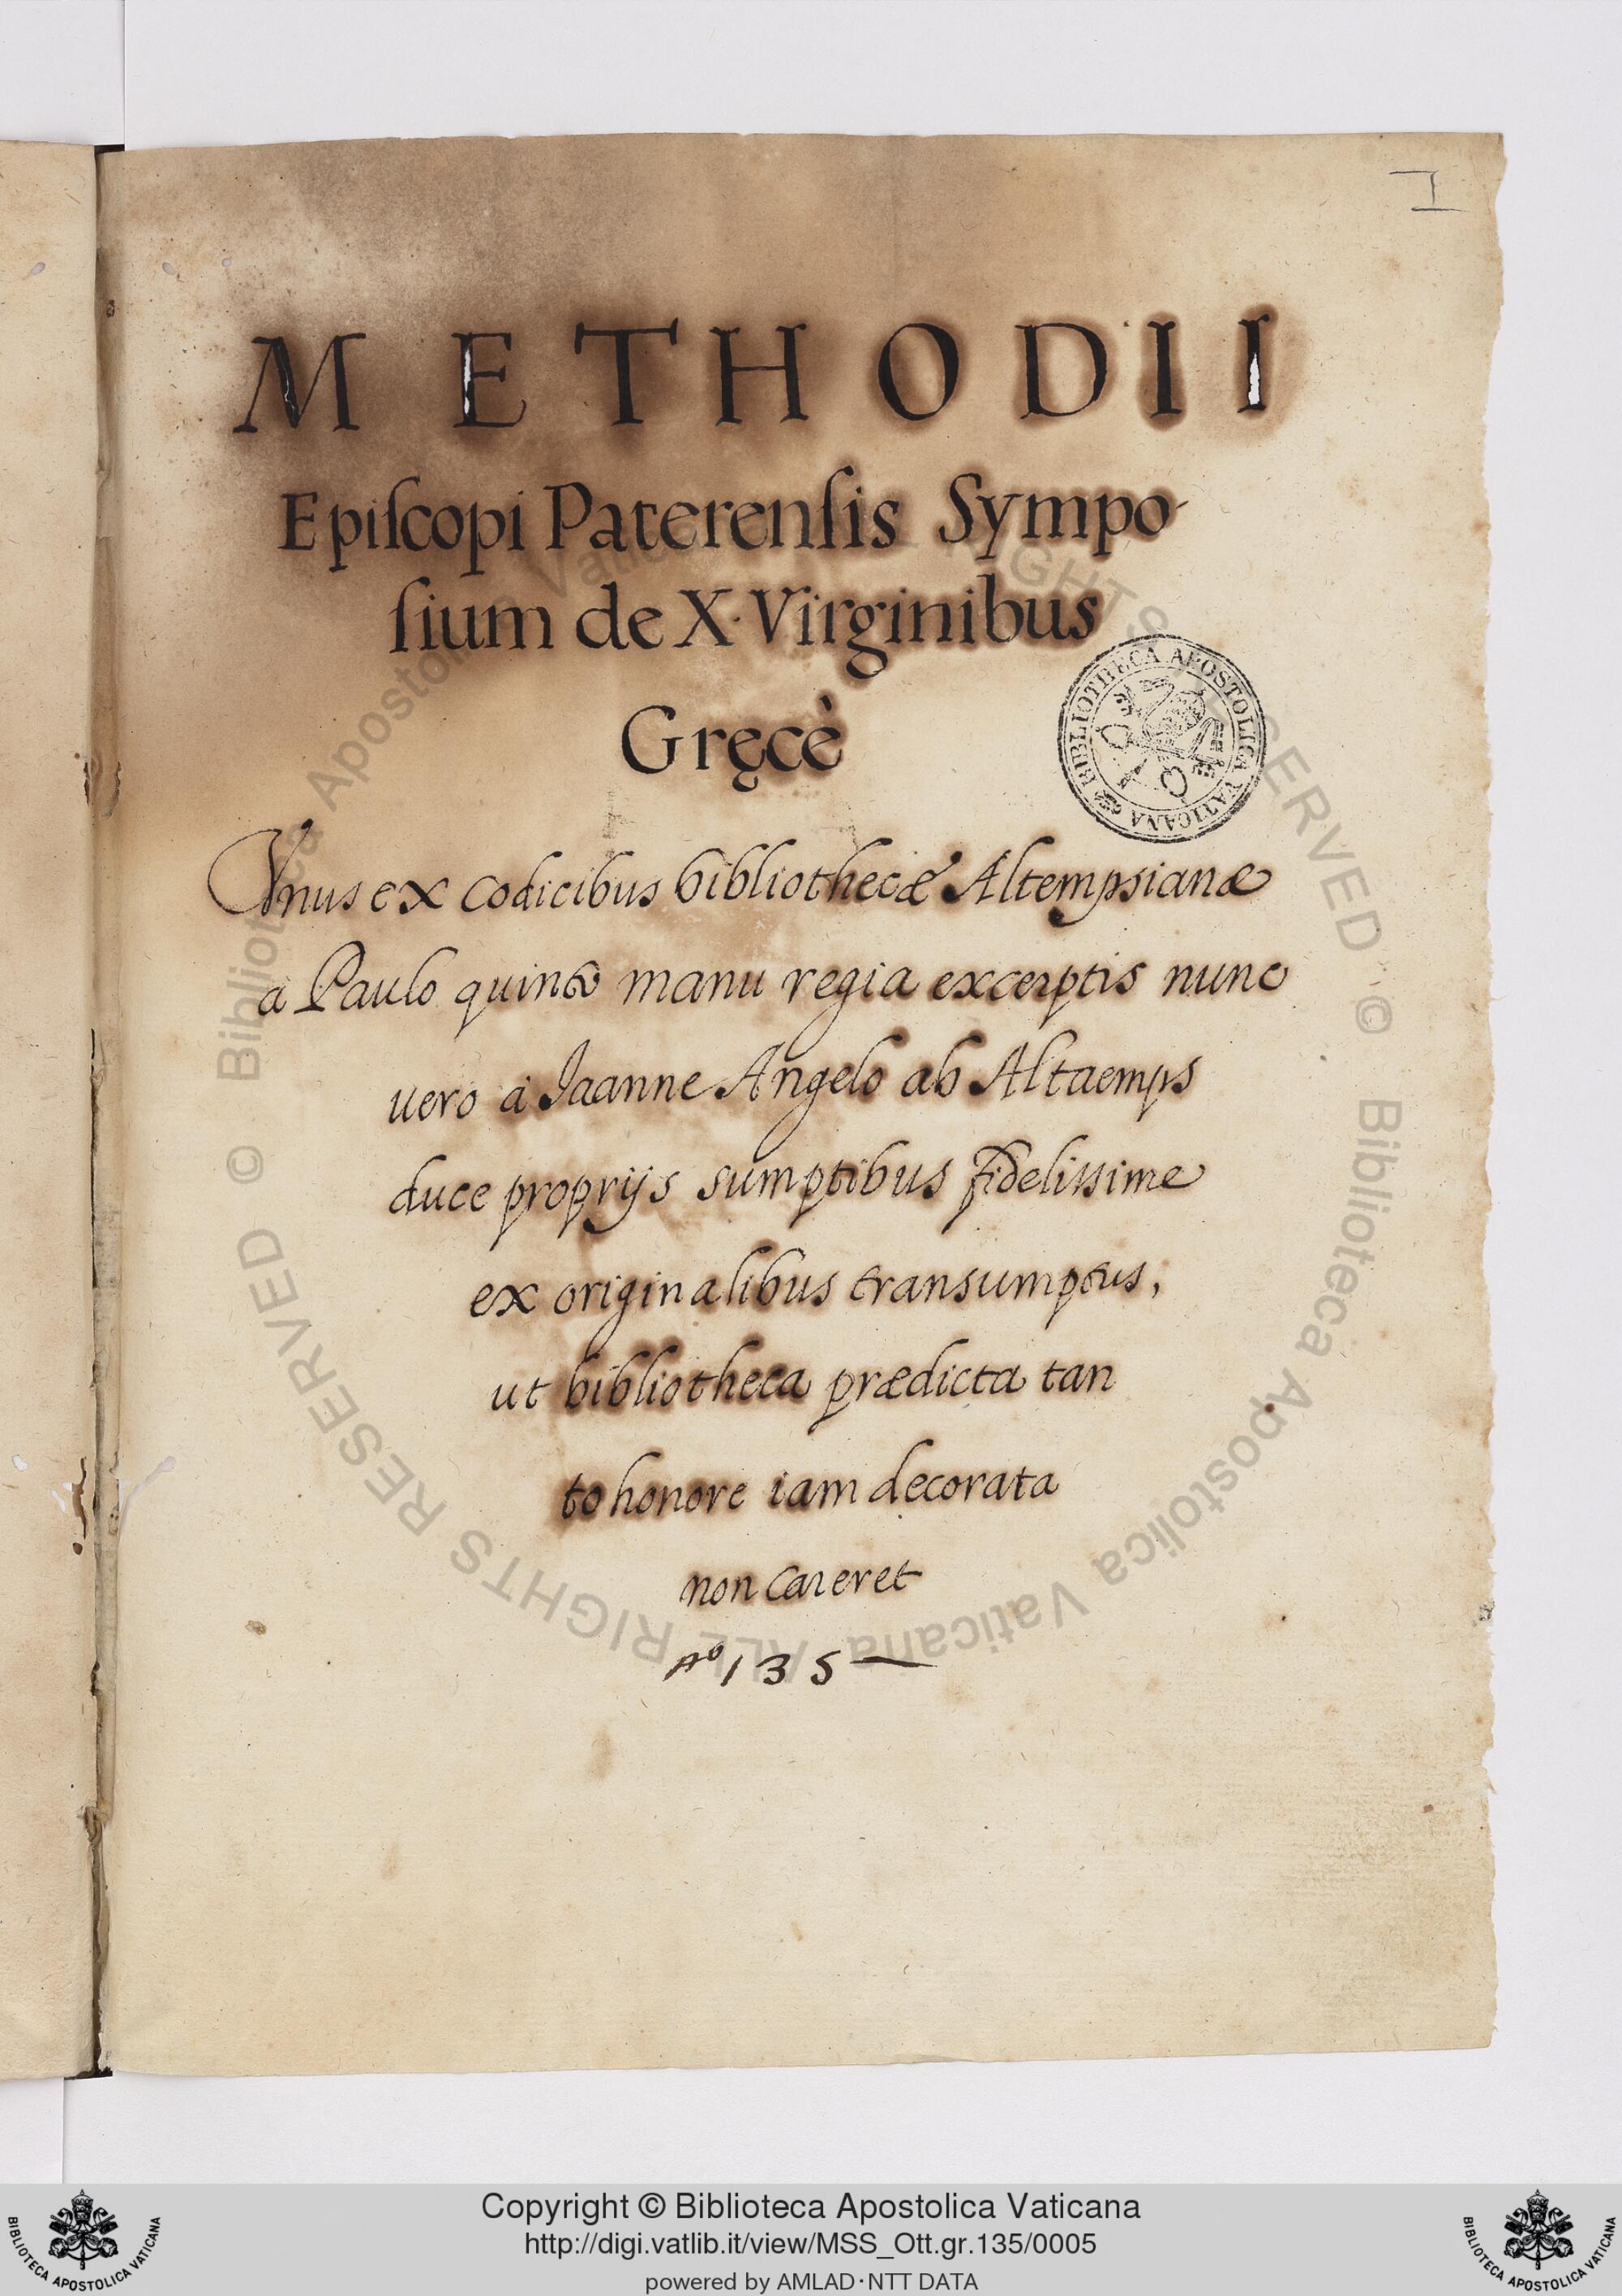 I
METHODII
Epiſcopi Paterenſis Sympo-
ſium de X. Virginibus
Gręcè
BIBLIOTHECA APOSTOLICA VATICANA
Vnus ex codicibus bibliothecæ Altempsianæ
a Paulo quinto manu regia excerptis nunc
uero a Ioanne Angelo ab Altaemps
duce proprijs sumptibus fidelissime
ex originalibus transumptus,
ut bibliotheca prædicta tan
to honore iam decorata
non careret
Aº 135
© Biblioteca Apostolica Vaticana ALL RIGHTS RESERVED © Biblioteca Apostolica Vaticana ALL RIGHTS RESERVED
Copyright © Biblioteca Apostolica Vaticana
http://digi.vatlib.it/view/MSS_Ott.gr.135/0005
powered by AMLAD·NTT DATA
BIBLIOTECA APOSTOLICA VATICANA
BIBLIOTECA APOSTOLICA VATICANA